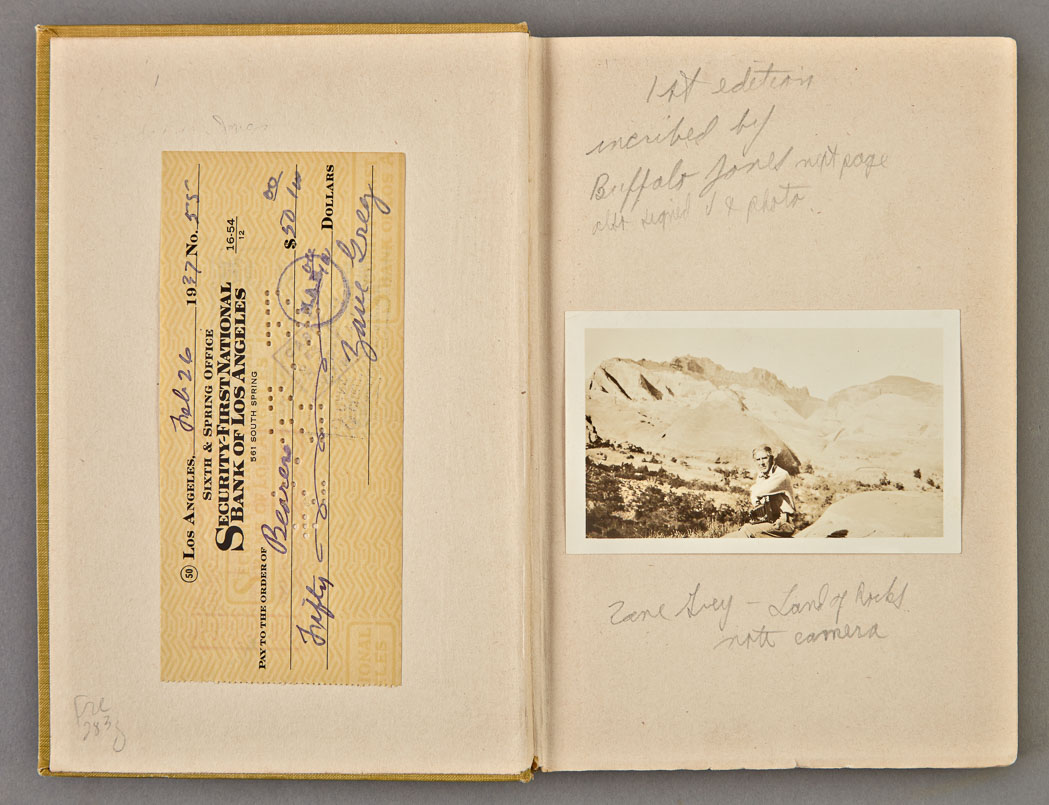 Los Angeles, Feb 26 1937 No. 55
50
Sixth & Spring Office
Security-First National
Bank of Los Angeles
16-54
12
561 South Spring
Pay to the order of Bearer $50
Fifty Dollars
Zane Grey
1st edition
incribed by
Buffalo Jones next page
also signed & photo
Zane Grey – Land of Rocks
note camera